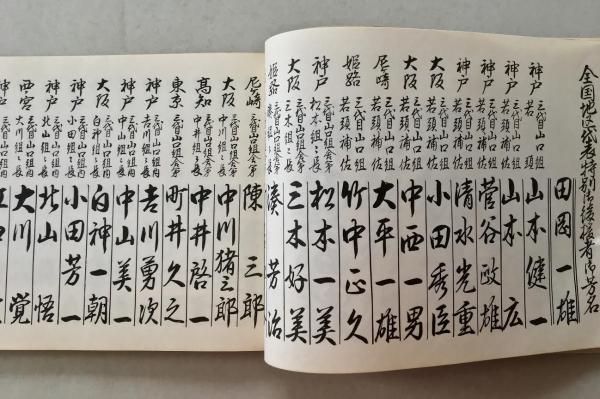 全国地区代表特別御後援者御芳名
田岡一雄
神戸 三代目山口組 若頭 山本健一
神戸 三代目山口組 若頭補佐 山本広
神戸 三代目山口組 若頭補佐 菅谷政雄
神戸 三代目山口組 若頭補佐 清水光重
大阪 三代目山口組 若頭補佐 小田秀臣
大阪 三代目山口組 若頭補佐 中西一男
尼崎 三代目山口組 若頭補佐 大平一雄
姫路 三代目山口組 若頭補佐 竹中正久
神戸 三代目山口組舎弟 松本組々長 松本一美
大阪 三代目山口組舎弟 三木組々長 三木好美
姫路 三代目山口組舎弟 湊組々長 湊芳治
尼崎 三代目山口組舎弟 陳三郎
大阪 三代目山口組舎弟 中川組々長 中川猪三郎
高知 三代目山口組舎弟 中井組々長 中井啓一
東京 三代目山口組舎弟 町井久之
神戸 三代目山口組内 吉川組々長 吉川勇次
神戸 三代目山口組内 中山組々長 中山美一
大阪 三代目山口組内 白神組々長 白神一朝
神戸 三代目山口組内 小田組々長 小田芳一
神戸 三代目山口組内 北山組々長 北山悟
西宮 三代目山口組内 大川組々長 大川覚
神戸